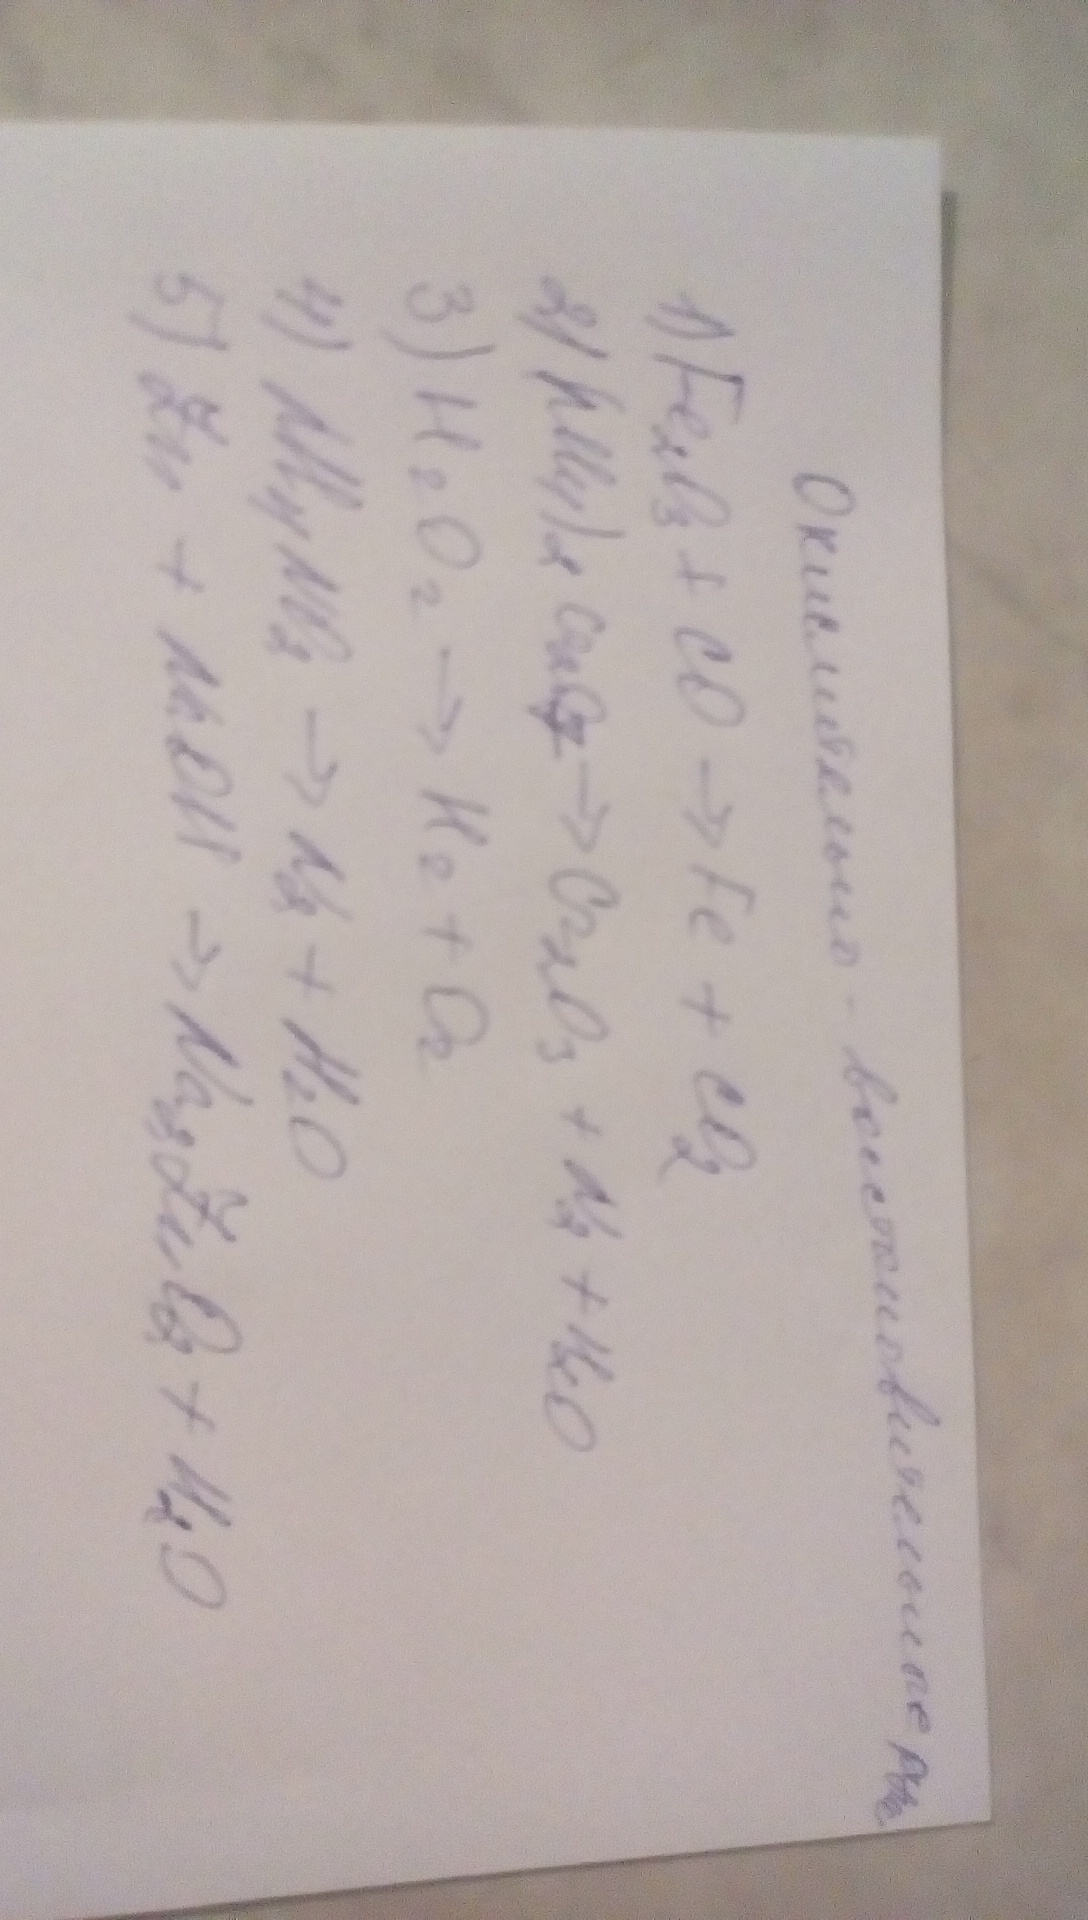 Окислительно - восстановительные р-ые
1) Fe₂O₃ + CO → Fe + CO₂
2) (NH₄)₂ Cr₂O₇ → Cr₂O₃ + N₂ + H₂O
3) H₂O₂ → H₂ + O₂
4) NH₄NO₂ → N₂ + H₂O
5) Zn + NaOH → Na₂ZnO₂ + H₂O